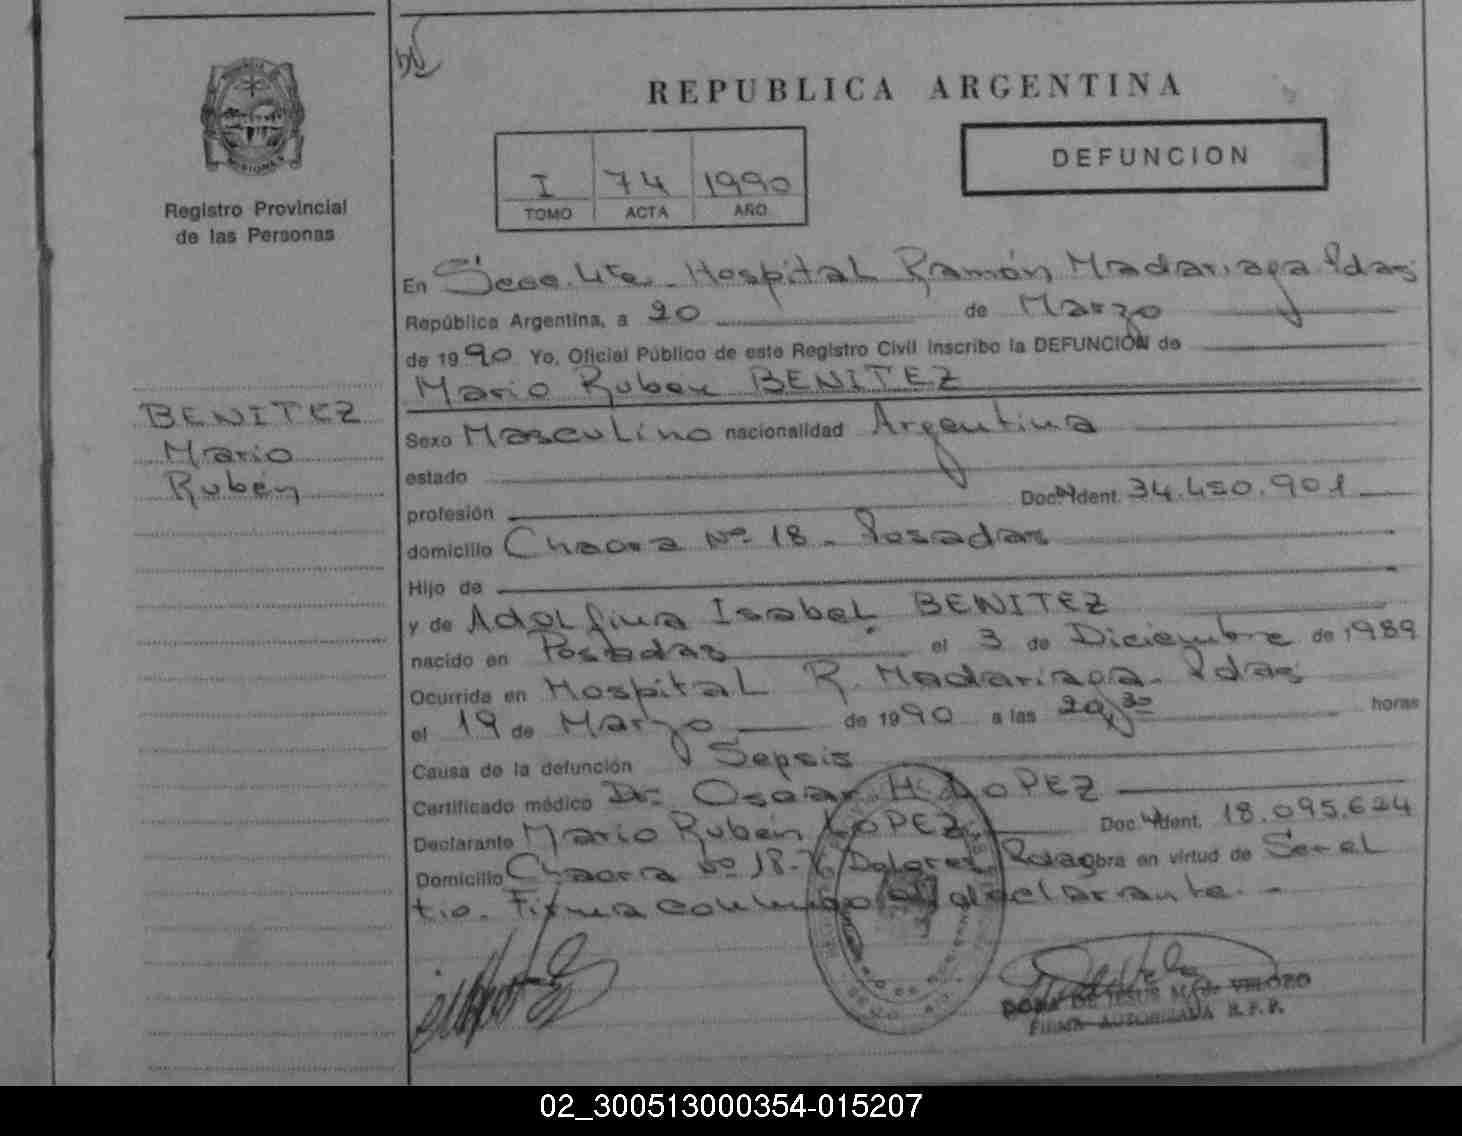 REPUBLICA ARGENTINA
DEFUNCION
I 74 1990
TOMO ACTA AÑO
MISIONES
Registro Provincial
de las Personas
En Secc. 4ta. Hospital Ramón Madariaga Pdas
República Argentina, a 20 de Marzo
de 1990 Yo, Oficial Público de este Registro Civil inscribo la DEFUNCIÓN de
Mario Ruben BENITEZ
BENITEZ
Mario
Rubén
Sexo Masculino nacionalidad Argentina
estado
profesión Doc. Ident. 34.450.901
domicilio Chacra Nº 18 - Posadas
Hijo de
y de Adolfina Isabel BENITEZ
nacido en Posadas el 3 de Diciembre de 1989
Ocurrida en Hospital R. Madariaga - Pdas
el 19 de Marzo de 1990 a las 20,30 horas
Causa de la defunción Sepsis
Certificado médico Dr. Oscar H. LOPEZ
Declarante Mario Rubén LOPEZ Doc. Ident. 18.095.624
Domicilio Chacra Nº 18- Dolores Obra en virtud de Ser el
tio. Firma conmigo el declarante. -
DE JESUS VELOZO
FIRMA AUTORIZADA R.P.P.
02_300513000354-015207